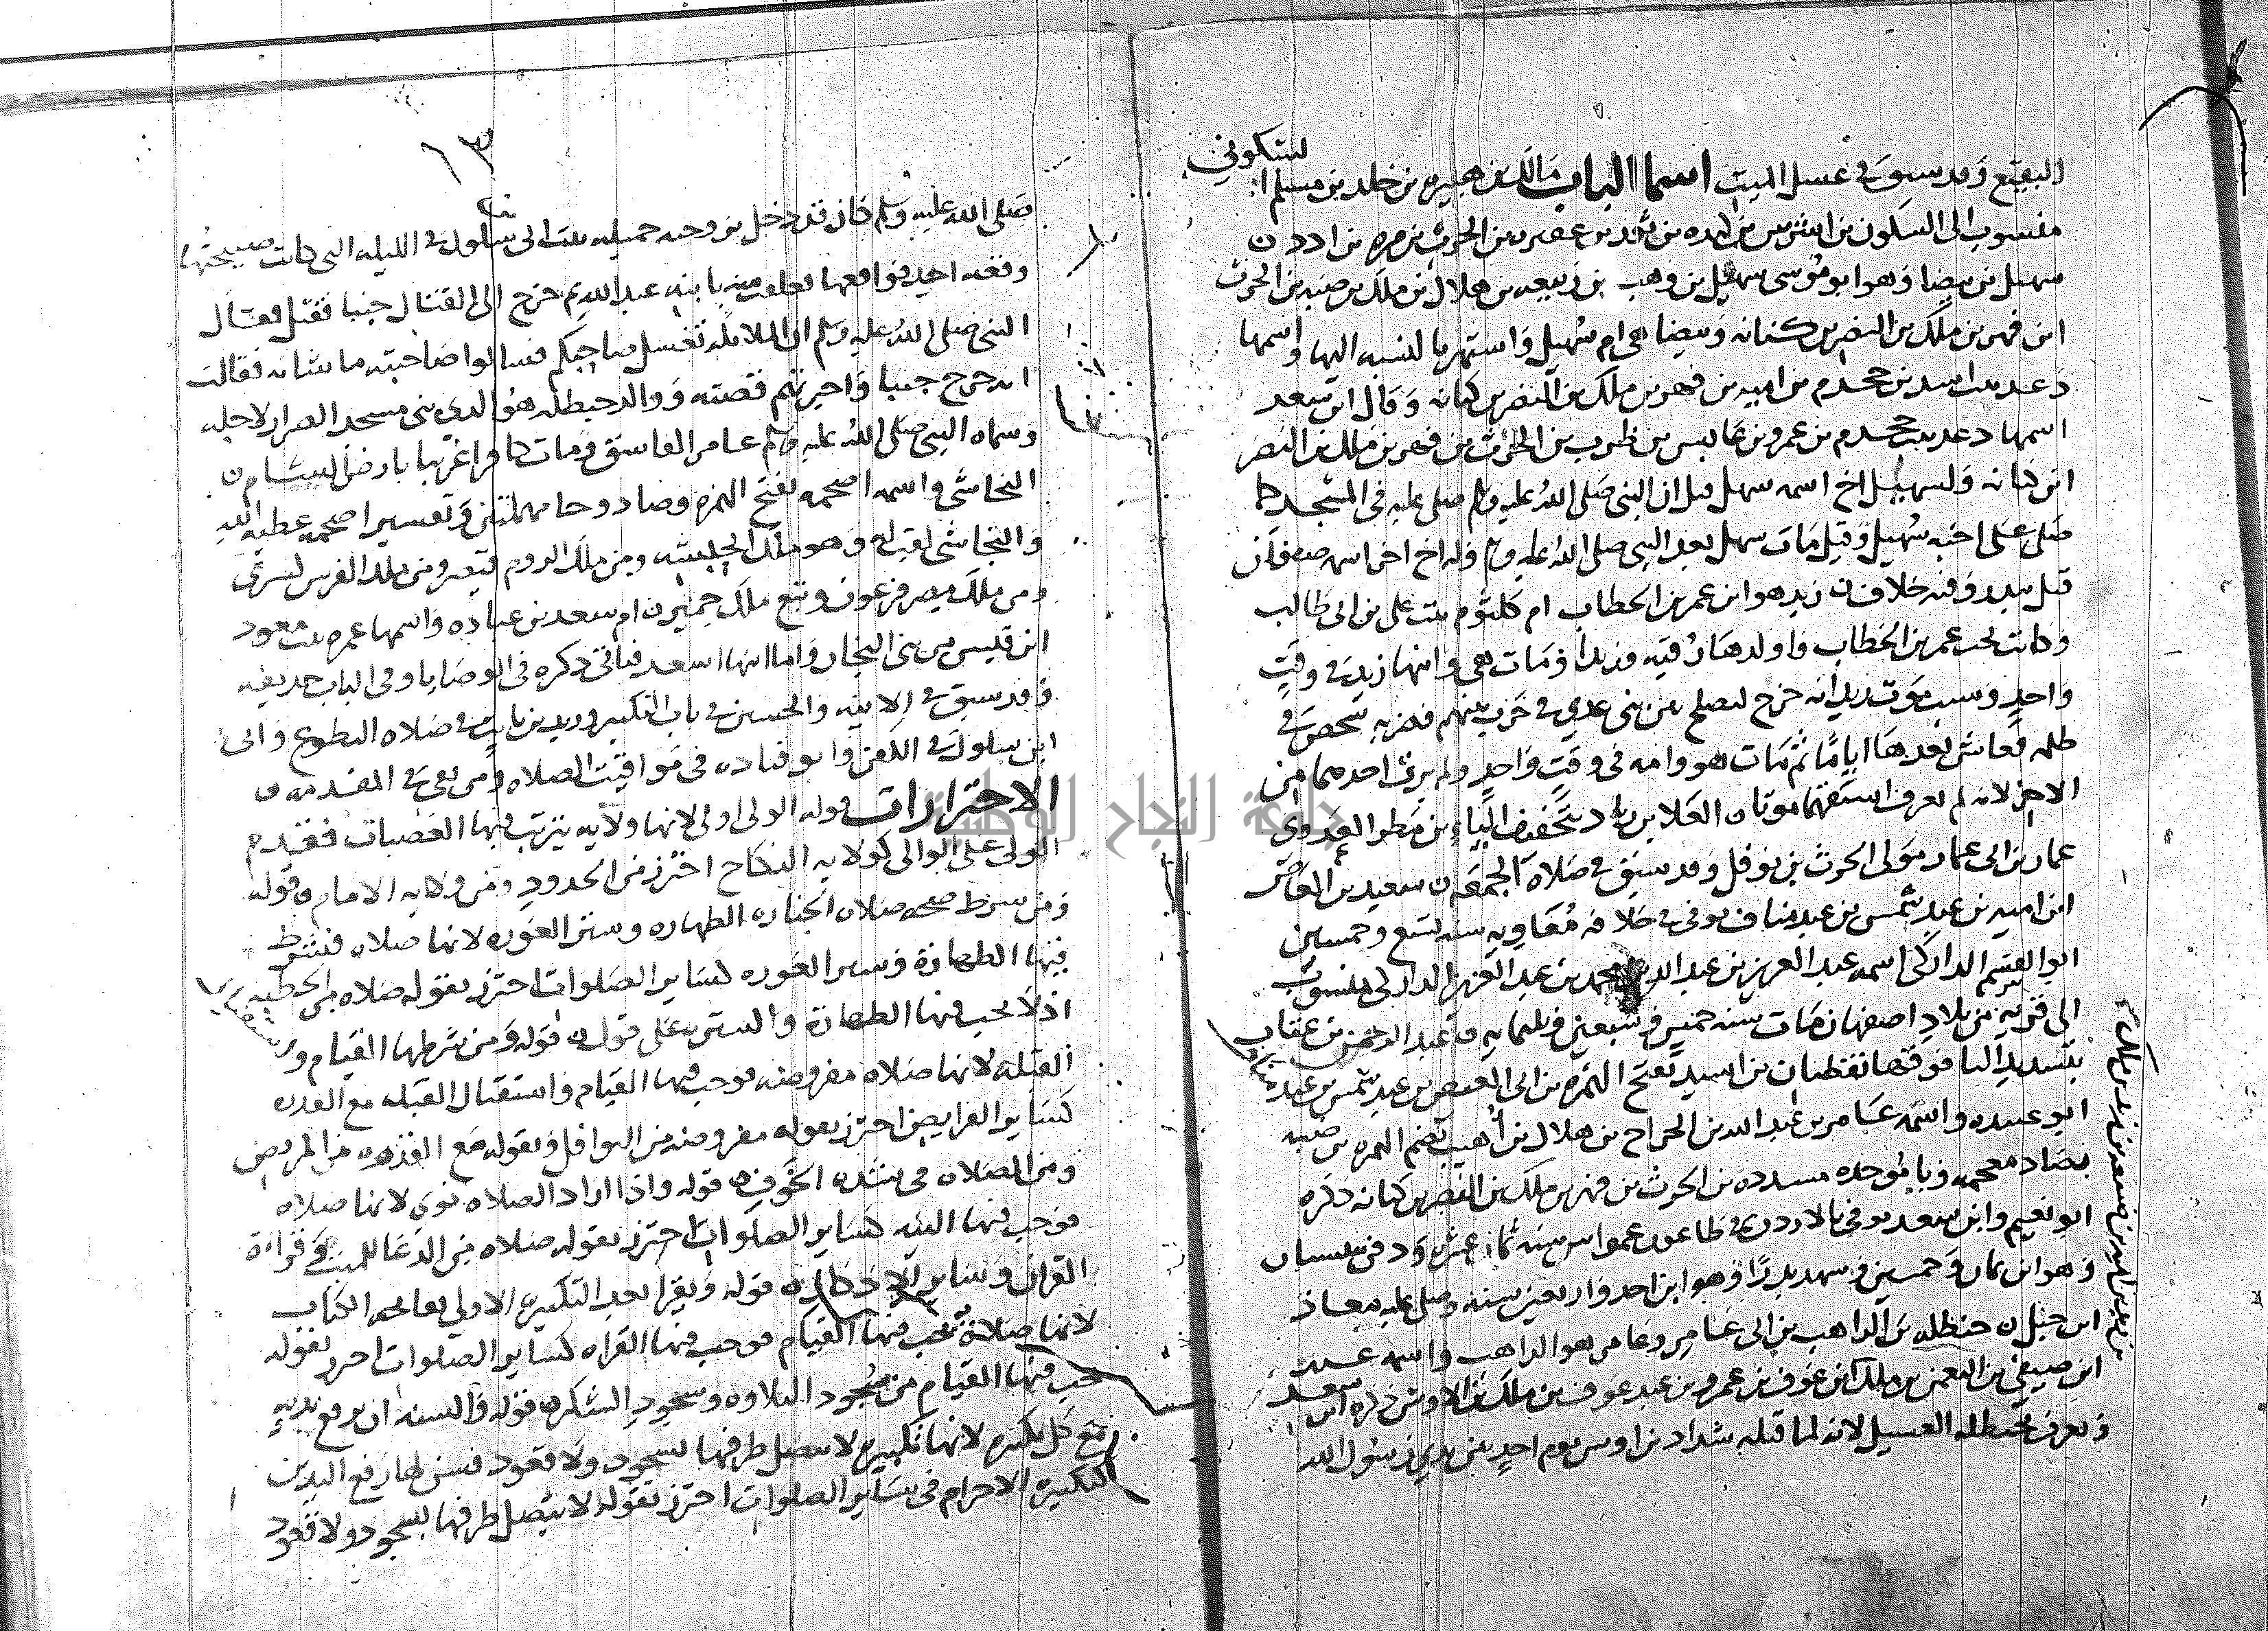 البقيع وقد سبق في غسل الميت اسما الباب مالك بن هبيره بن خلد بن مسلم السكوني
منسوب الى السكون بن اشرس بن كنده بن ثور بن عفير بن الحرث بن مره بن ادد ن
سهيل بن بيضا وهو ابو موسى سهيل بن وهب بن ربيعه بن هلال بن ملك بن ضبه بن الحرث
ابن فهر بن ملك بن النضر بن كنانه وبيضا هي ام سهيل واشتهر بالنسبه اليها واسمها
دعد بنت اسد بن جحدم بن اميه بن فهر بن ملك بن النضر بن كنانه وقال ابن سعد
اسمها دعد بنت جحدم بن عمرو بن عايس بن ظرب بن الحرث بن فهر بن ملك بن النضر
ابن كنانه ولسهيل اخ اسمه سهل قيل ان النبي صلى الله عليه وسلم صلى عليه في المسجد كما
صلى على اخيه سهيل وقيل مات سهل بعد النبي صلى الله عليه وسلم وله اخ اخر اسمه صفوان
قتل ببدر وفيه خلاف ن زيد هو ابن عمر بن الخطاب ام كلثوم بنت علي بن ابي طالب
وكانت تحت عمر بن الخطاب واولدها رقيه وزيدا ومات هي وابنها زيد في وقت
واحد وسبب موت زيد انه خرج ليصلح بين بني عدي في حرب بينهم فضربه شخص في
ظلمه فعاش بعدها اياما ثم مات هو وامه في وقت واحد ولم يرث احدهما من
الاخر لانه لم يعرف اسبقهما موتا ن العلا بن زياد بتخفيف الياء بن مطر العدوي
عمار بن ابي عمار مولى الحرث بن نوفل وقد سبق في صلاه الجمعه ن سعيد بن العاص
ابن اميه بن عبد شمس بن عبد مناف توفي في خلافه معاويه سنه تسع وخمسين
ابو القسم الداركي اسمه عبد العزيز بن عبد الله بن محمد بن عبد العزيز الداركي منسوب
الى قريه من بلاد اصفهان مات سنه خمس وسبعين وثلثمايه ن عبد الرحمن بن عتاب
بتشديد التا فوقها نقطتان بن اسيد بفتح الهمزه بن ابي العيص بن عبد شمس بن عبد مناف
ابو عبيده واسمه عامر بن عبد الله بن الجراح بن هلال بن أهيب بضم الهمزه بن ضبه
بضاد معجمه وبا موحده مشدده بن الحرث بن فهر بن ملك بن النضر بن كنانه ذكره
ابو نعيم وابن سعد توفي بالاردن في طاعون عمواس سنه ثمان عشره ودفن ببيسان
وهو ابن ثمان وخمسين وشهد بدرا وهو ابن احد واربعين سنه وصلى عليه معاذ
ابن جبل ن حنظله بن الراهب بن ابي عامر وعامر هو الراهب واسمه عبد
ابن صيفي بن النعمن بن ملك بن عوف بن عمرو بن عبد عوف بن ملك بن الاوس ذكره ابن سعد
ويعرف حنظله الغسيل لانه لما قتله شداد بن اوس يوم احد بين يدي رسول الله
١٣
صلى الله عليه وسلم كان قد دخل بزوجته جميله بنت ابي بن سلول في الليله التي كانت صبيحتها
وقعه احد فواقعها فعلقت منه بابنه عبد الله ثم خرج الى القتال جنبا فقتل فقال
النبي صلى الله عليه وسلم ان الملايكه تغسل صاحبكم فسالوا صاحبته ما شانه فقالت
انه خرج جنبا واخبرتهم قصته ووالد حنظله هو الذي بنى مسجد الضرار لاجله
وسماه النبي صلى الله عليه وسلم عامر الفاسق ومات كافرا غريبا بارض الشام ن
النجاشي واسمه اصحمه بفتح الهمزه وصاد وحا مهملتين وتفسير اصحمه عطيه الله
والنجاشي لقب له وهو ملك الحبشه ومن ملك الروم قيصر ومن ملك الفرس كسرى
ومن ملك مصر فرعون وتبع ملك حمير ن ام سعد بن عباده واسمها عمره بنت مسعود
ابن قيس من بني النجار واما ابنها سعد فياتي ذكره في الوصايا وفي الباب حذيفه
وقد سبق في الانيه والحسين في باب التكبير وزيد بن ثابت في صلاه التطوع وابي
ابن سلول في الكفن وابو قتاده في مواقيت الصلاه ومن بقي في المقدمه ن
الاحترازات قوله الولي اولى لانها ولايه يترتب فيها العصبات فقدم
الولي على الوالي كولايه النكاح احترز من الحدود ومن ولايه الامام ن قوله
ومن شرط صحه صلاه الجنازه الطهاره وستر العوره لانها صلاه فشرط
فيها الطهارة وستر العوره كساير الصلوات احترز بقوله صلاه من الخطبه
اذ لا يجب فيها الطهارة والستر على قول ن قوله ومن شرطها القيام و
القبله لانها صلاه مفروضه فوجب فيها القيام واستقبال القبله مع القدره
كساير الفرايض احترز بقوله مفروضه من النوافل وبقوله مع القدره من المريض
ومن الصلاه في شده الخوف ن قوله واذا اراد الصلاه نوى لانها صلاه
فوجب فيها النيه كساير الصلوات احترز بقوله صلاه من الدعا للميت وقراءة
القران وساير الاذكار ن قوله ويقرا بعد التكبيره الاولى بفاتحه الكتاب
لانها صلاة يجب فيها القيام فوجب فيها القراه كساير الصلوات احترز بقوله
يجب فيها القيام من سجود التلاوه وسجود الشكر ن قوله والسنه ان يرفع يديه
مع كل تكبيره لانها تكبيره لا يتصل طرفها بسجود ولا قعود فسن لها رفع اليدين
كتكبيرة الاحرام في ساير الصلوات احترز بقوله لا يتصل طرفها بسجود ولا قعود